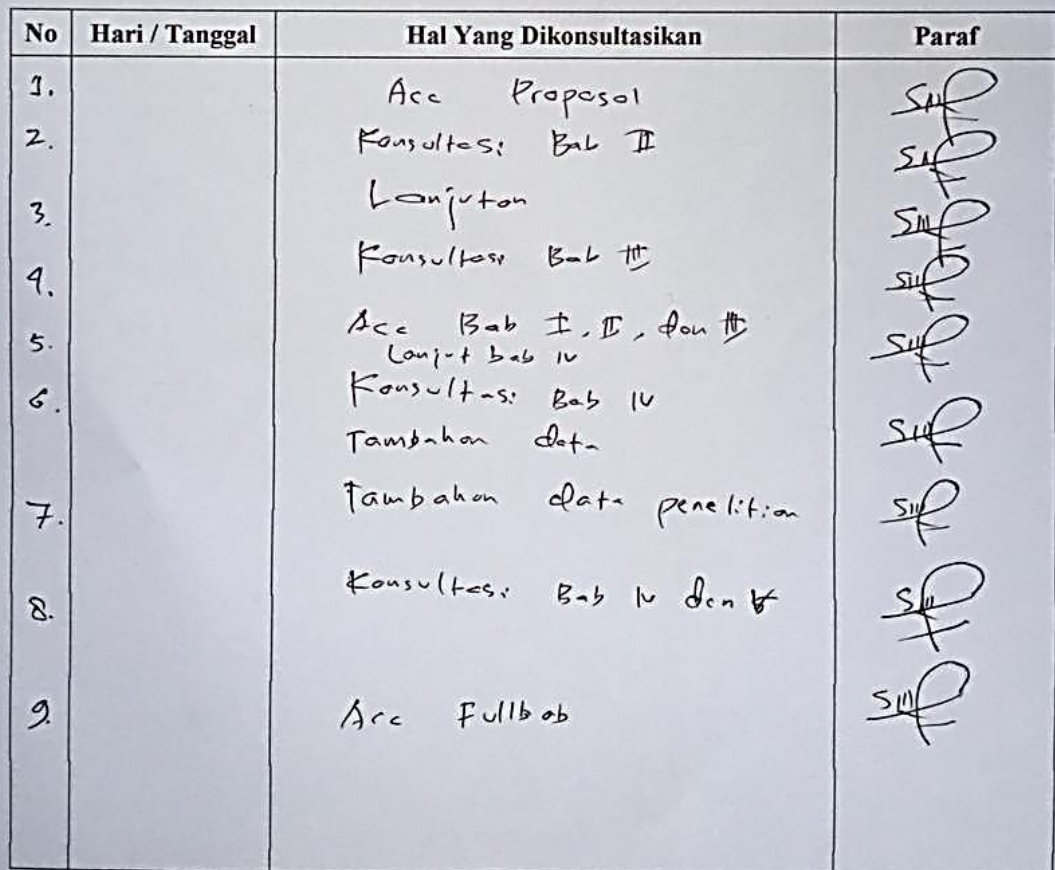 No Hari / Tanggal Hal Yang Dikonsultasikan Paraf
1. Acc Proposal
2. Konsultasi Bab II
3. Lanjutan
4. Konsultasi Bab III
5. Acc Bab I, II, dan III
Lanjut bab IV
6. Konsultasi Bab IV
Tambahan data
7. Tambahan data penelitian
8. Konsultasi Bab IV dan V
9. Acc Fullbab